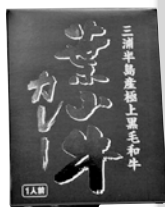 三浦半島産極上黒毛和牛
葉山牛
カレー
1人前